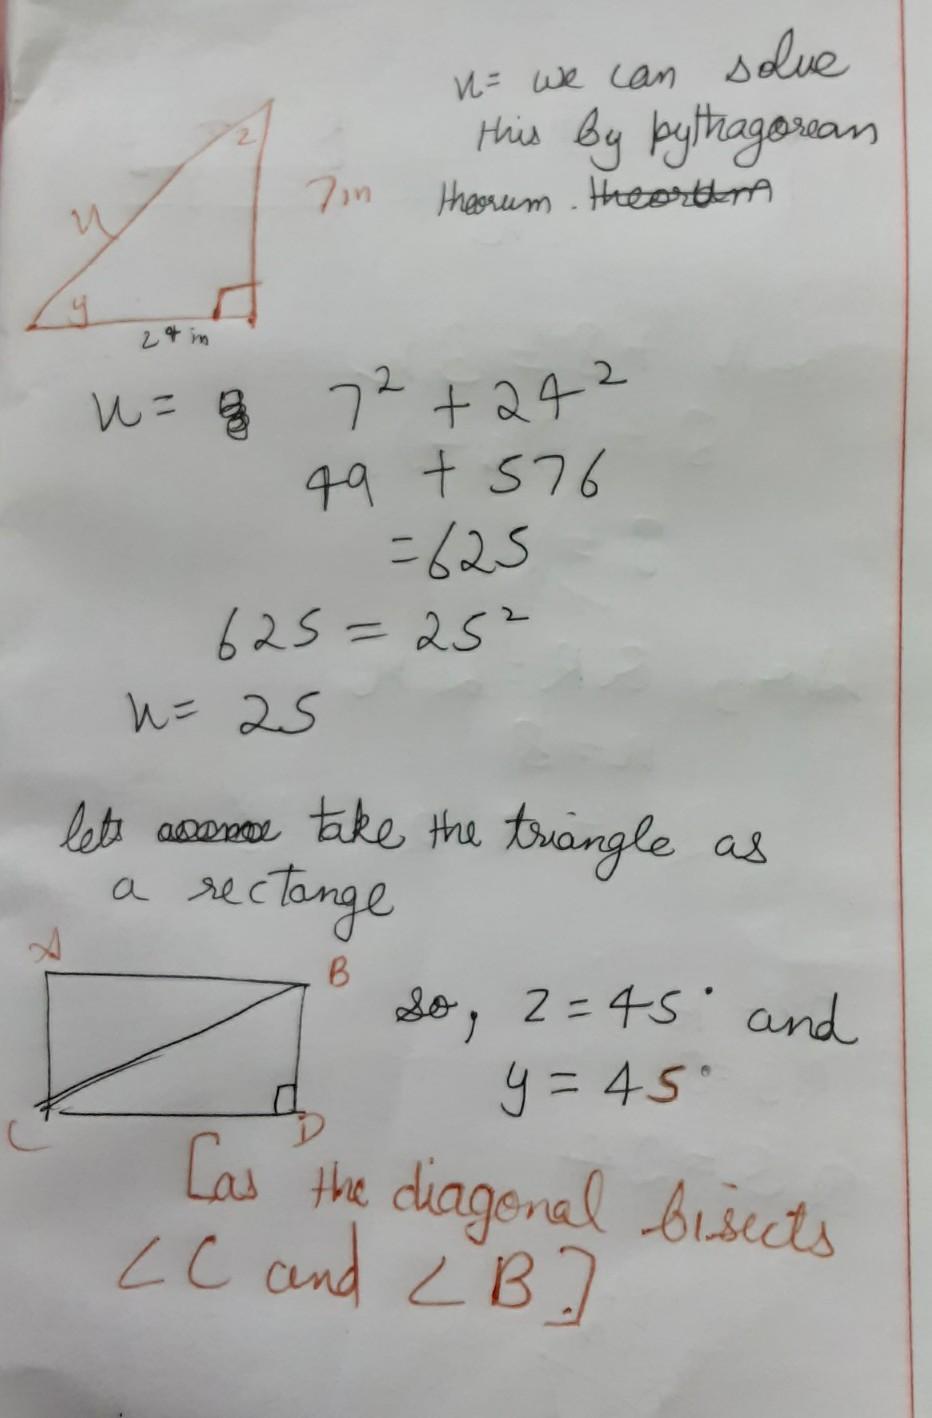 n= we can solve
this by pythagorean
theorum. theorum
z
7in
n
y
24 in
n= 7² + 24²
49 + 576
=625
625 = 25²
n= 25
lets take the triangle as
a rectange
A
B
so, z = 45° and
y = 45°
C
D
[as the diagonal bisects
∠C and ∠B.]